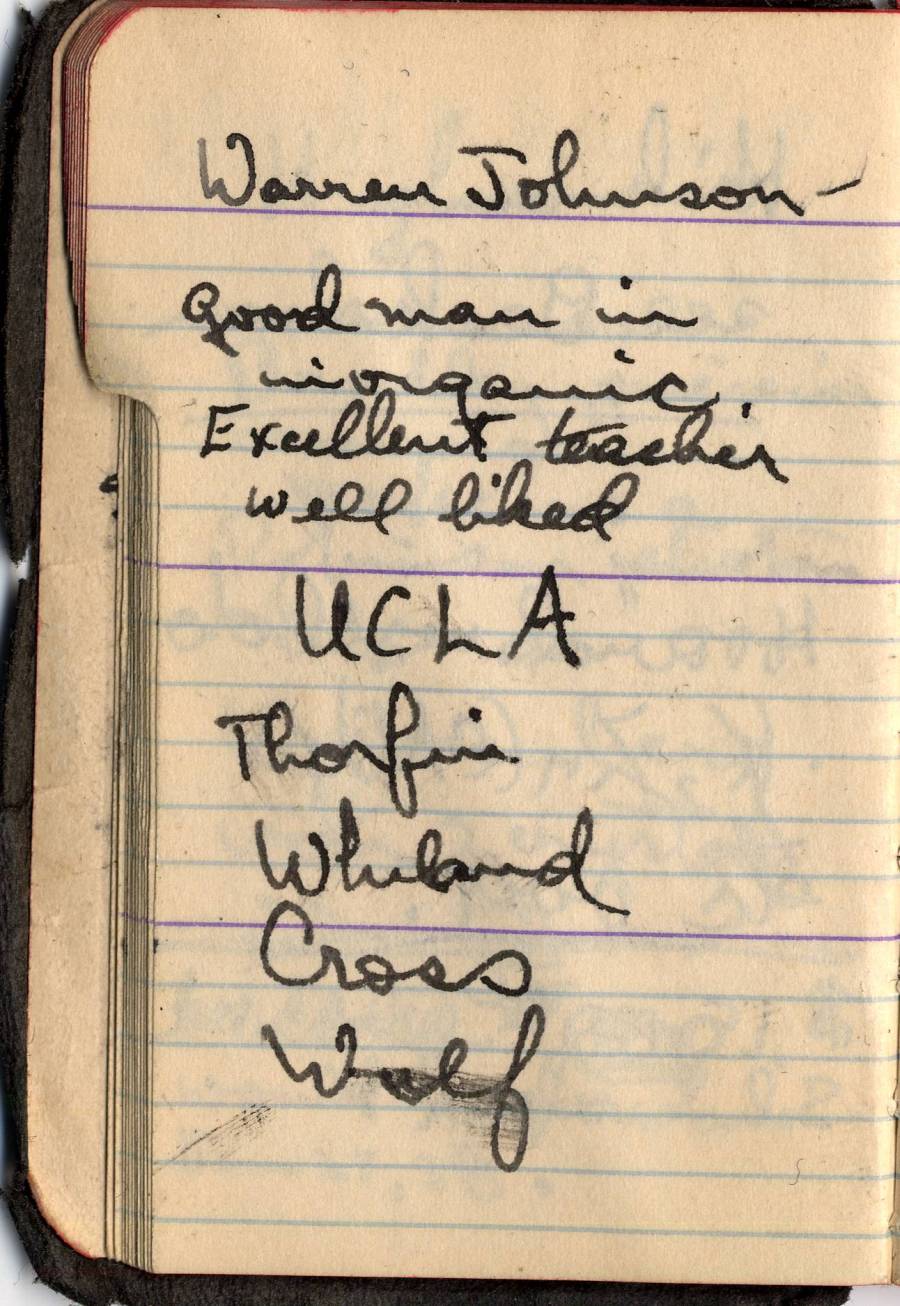 Warren Johnson –
Good man in
inorganic.
Excellent teacher
well liked
UCLA
Thorfin
Cross
Wulf